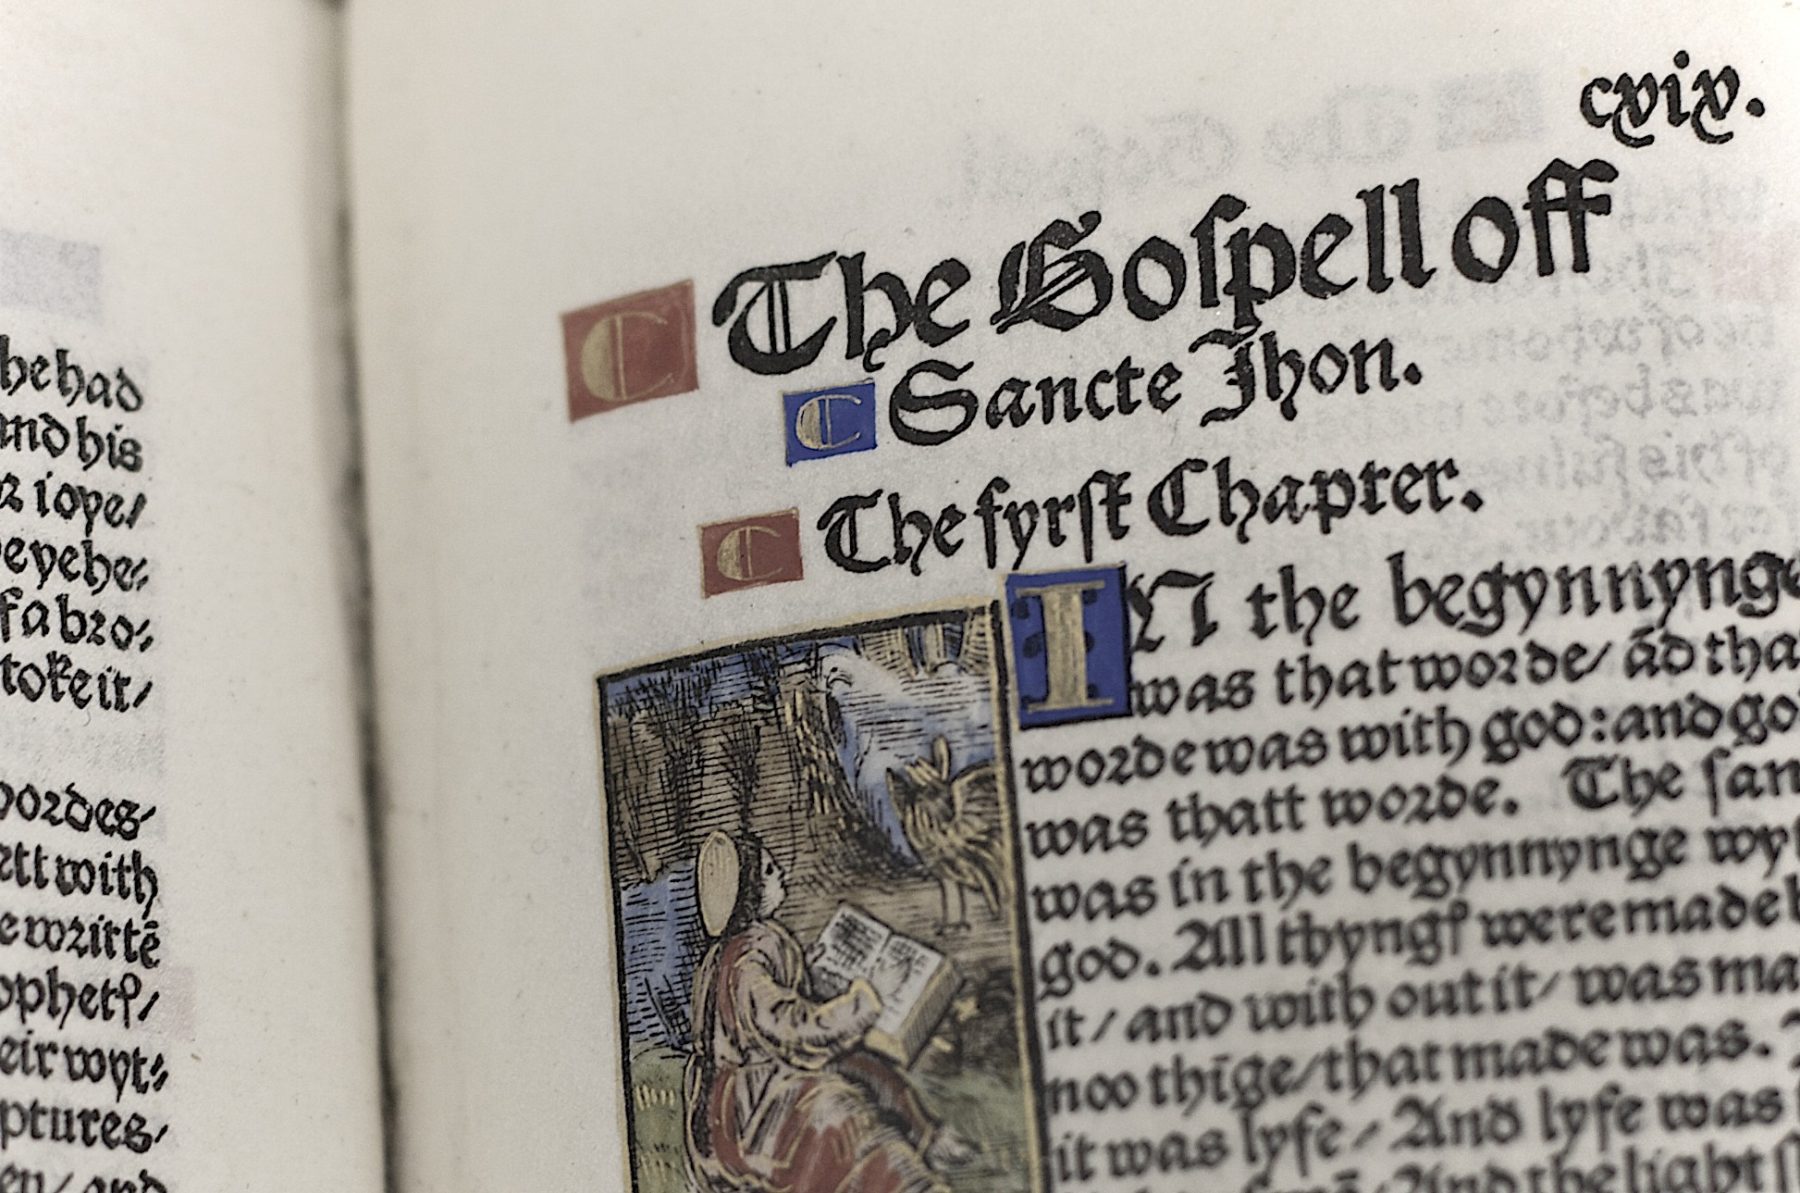 he had
and his
iope/
peyehe⸗
f a bro⸗
toke it/
wordes/
ett with
e writtē
ophetꝭ/
eir wyt⸗
ptures/
en/ and
cxix.
C The Goſpell off
C Sancte Jhon.
C The fyrſt Chapter.
IN the begynnynge
was that worde/ ād tha
worde was with god: and go
was thatt worde. The ſan
was in the begynnynge wyt
god. All thyngꝭ were made b
it/ and with out it/ was ma
noo thīge/ that made was.
it was lyfe/ And lyfe was
And the light ſ